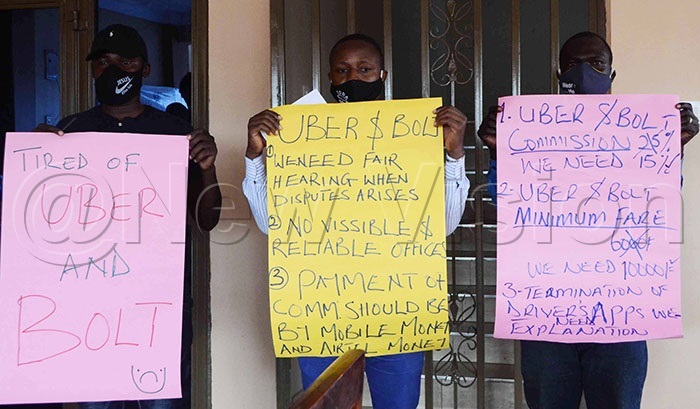 TIRED OF
UBER
AND
BOLT
UBER $ BOLT
① WE NEED FAIR
HEARING WHEN
DISPUTES ARISES
② NO VISSIBLE $
RELIABLE OFFICES
③ PAYMENT OF
COMM. SHOULD BE
BY MOBILE MONEY
AND AIRTEL MONEY
1. UBER $ BOLT
COMMISSION 25%
WE NEED 15%
2- UBER $ BOLT
MINIMUM FARE
WE NEED 10000/=
3- TERMINATION OF
DRIVER'S APPS WE
NEED
EXPLANATION
@New Vision